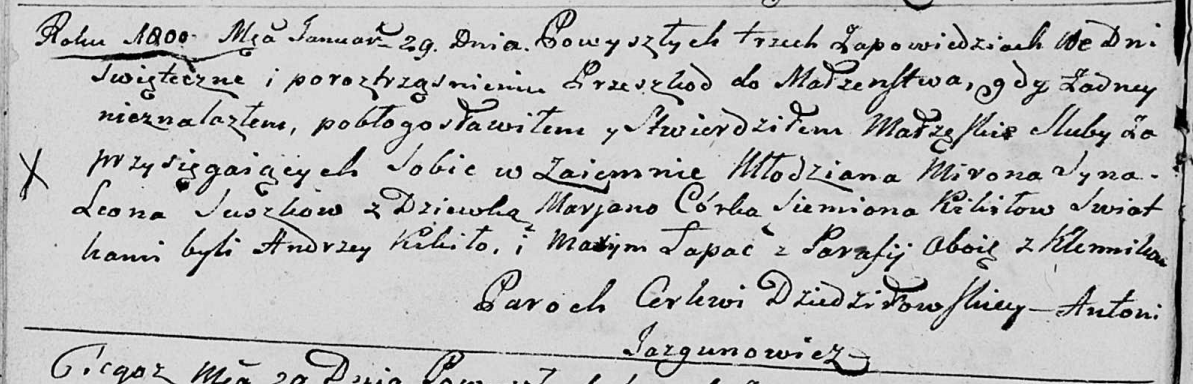 Roku 1800 Mca Januar 29. Dnia. Powyszłych trzech Zapowiedziach We Dni
Swięteczne i poroztrząsnieniu Przeszkod do Małzenstwa, gdy Żadney
nieznalazłem, pobłogosławiłem y Stwierdziłem Małzęskie Sluby Za
przysięgaiących Sobie w Zaiemnie Młodziana Mirona Syna
Leona Suszkow z Dziewką Marjano Córką Siemiona Kikiłow Swiat
kami byli Andrzey Kikiło, i Łapać z Parafij Oboię z Klennikow
Paroch Cerkwi Dziedziłowskiey - Antoni
Jazgunowicz
Mca 29 Dnia